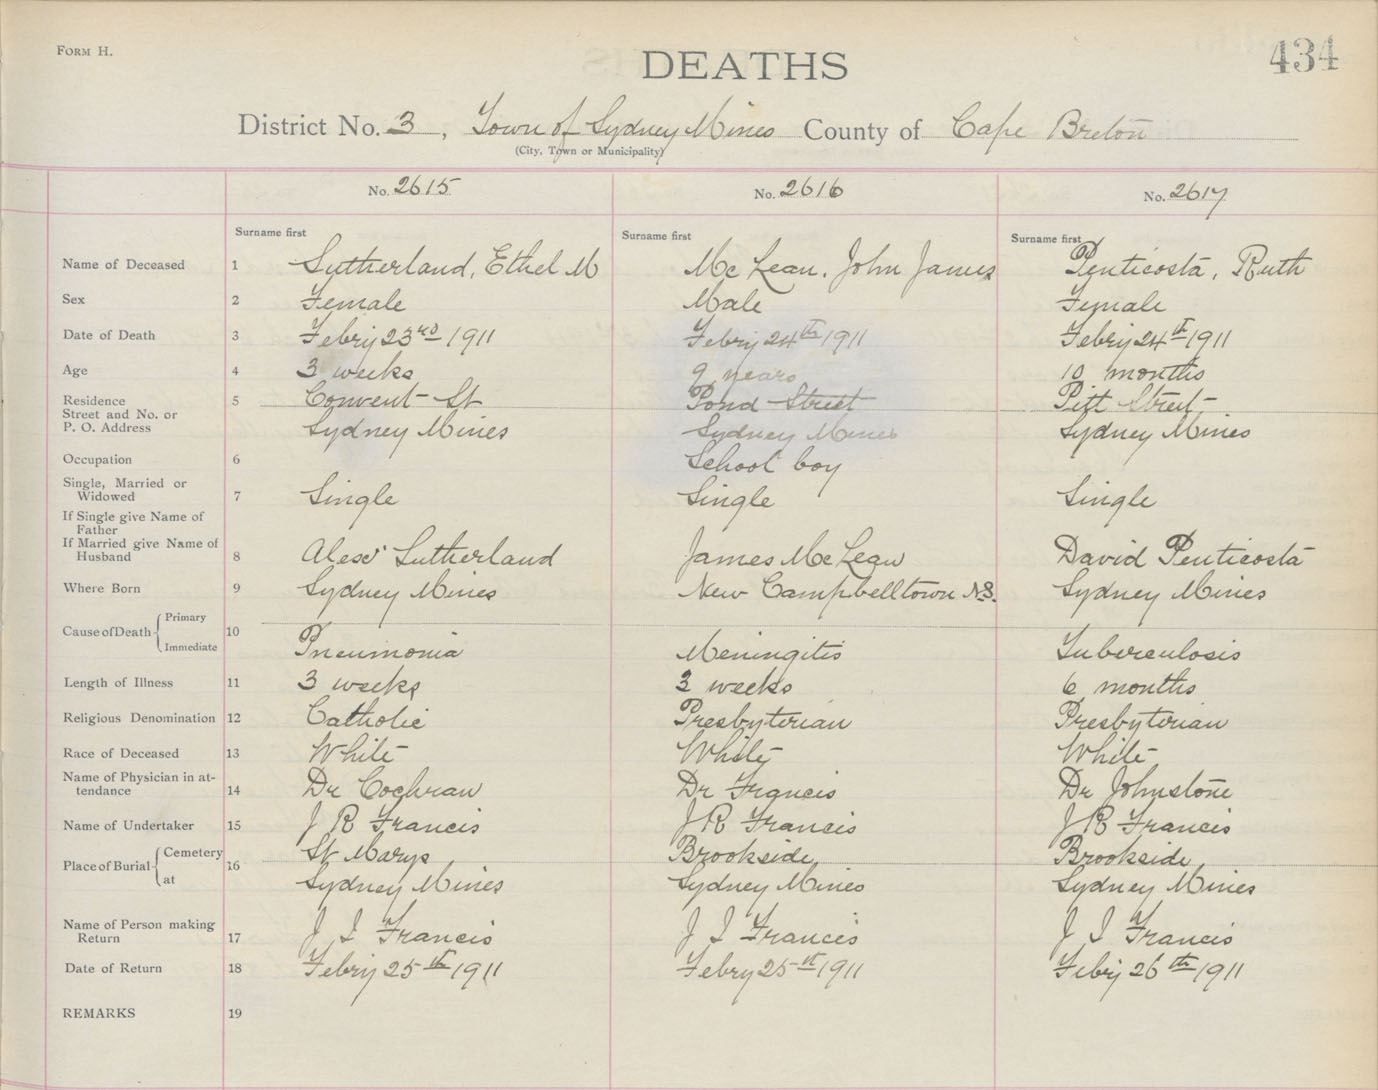 FORM H.
DEATHS
434
District No. 3, Town of Sydney Mines County of Cape Breton
(City, Town or Municipality)
No. 2615 No. 2616 No. 2617
Surname first Surname first Surname first
Name of Deceased 1 Sutherland, Ethel M McLean, John James Penticosta, Ruth
Sex 2 Female Male Female
Date of Death 3 Febry 23rd 1911 Febry 24th 1911 Febry 24th 1911
Age 4 3 weeks 9 years 10 months
Residence 5 Convent St Pond Street Pitt Street
Street and No. or
P. O. Address Sydney Mines Sydney Mines Sydney Mines
Occupation 6 School boy
Single, Married or
Widowed 7 Single Single Single
If Single give Name of
Father
If Married give Name of
Husband 8 Alexr Sutherland James McLean David Penticosta
Where Born 9 Sydney Mines New Campbelltown N.S. Sydney Mines
Cause of Death Primary
10
Immediate Pneumonia Meningitis Tuberculosis
Length of Illness 11 3 weeks 3 weeks 6 months
Religious Denomination 12 Catholic Presbyterian Presbyterian
Race of Deceased 13 White White White
Name of Physician in at-
tendance 14 Dr Cochran Dr Francis Dr Johnstone
Name of Undertaker 15 J R Francis J R Francis J R Francis
Place of Burial Cemetery 16 St Marys Brookside Brookside
at Sydney Mines Sydney Mines Sydney Mines
Name of Person making
Return 17 J I Francis J I Francis J I Francis
Date of Return 18 Febry 25th 1911 Febry 25th 1911 Febry 26th 1911
REMARKS 19